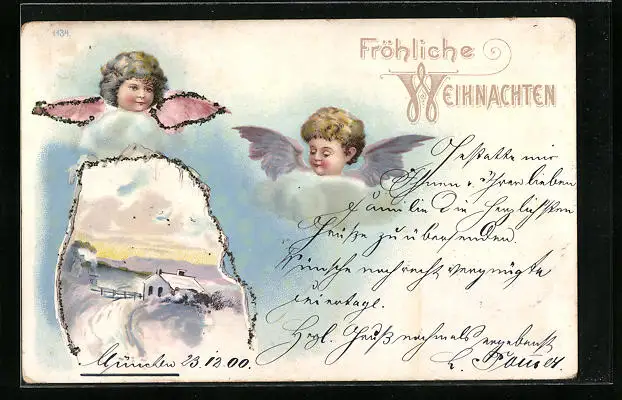 1134.
Fröhliche
WEIHNACHTEN
Gestatte mir
Ihnen u. Ihrer lieben
Familie die herzlichsten
Grüße zu übersenden.
Wünsche noch recht vergnügte
Feiertage.
Hrzl. Gruß nochmals ergebenst
München 23.12.00.